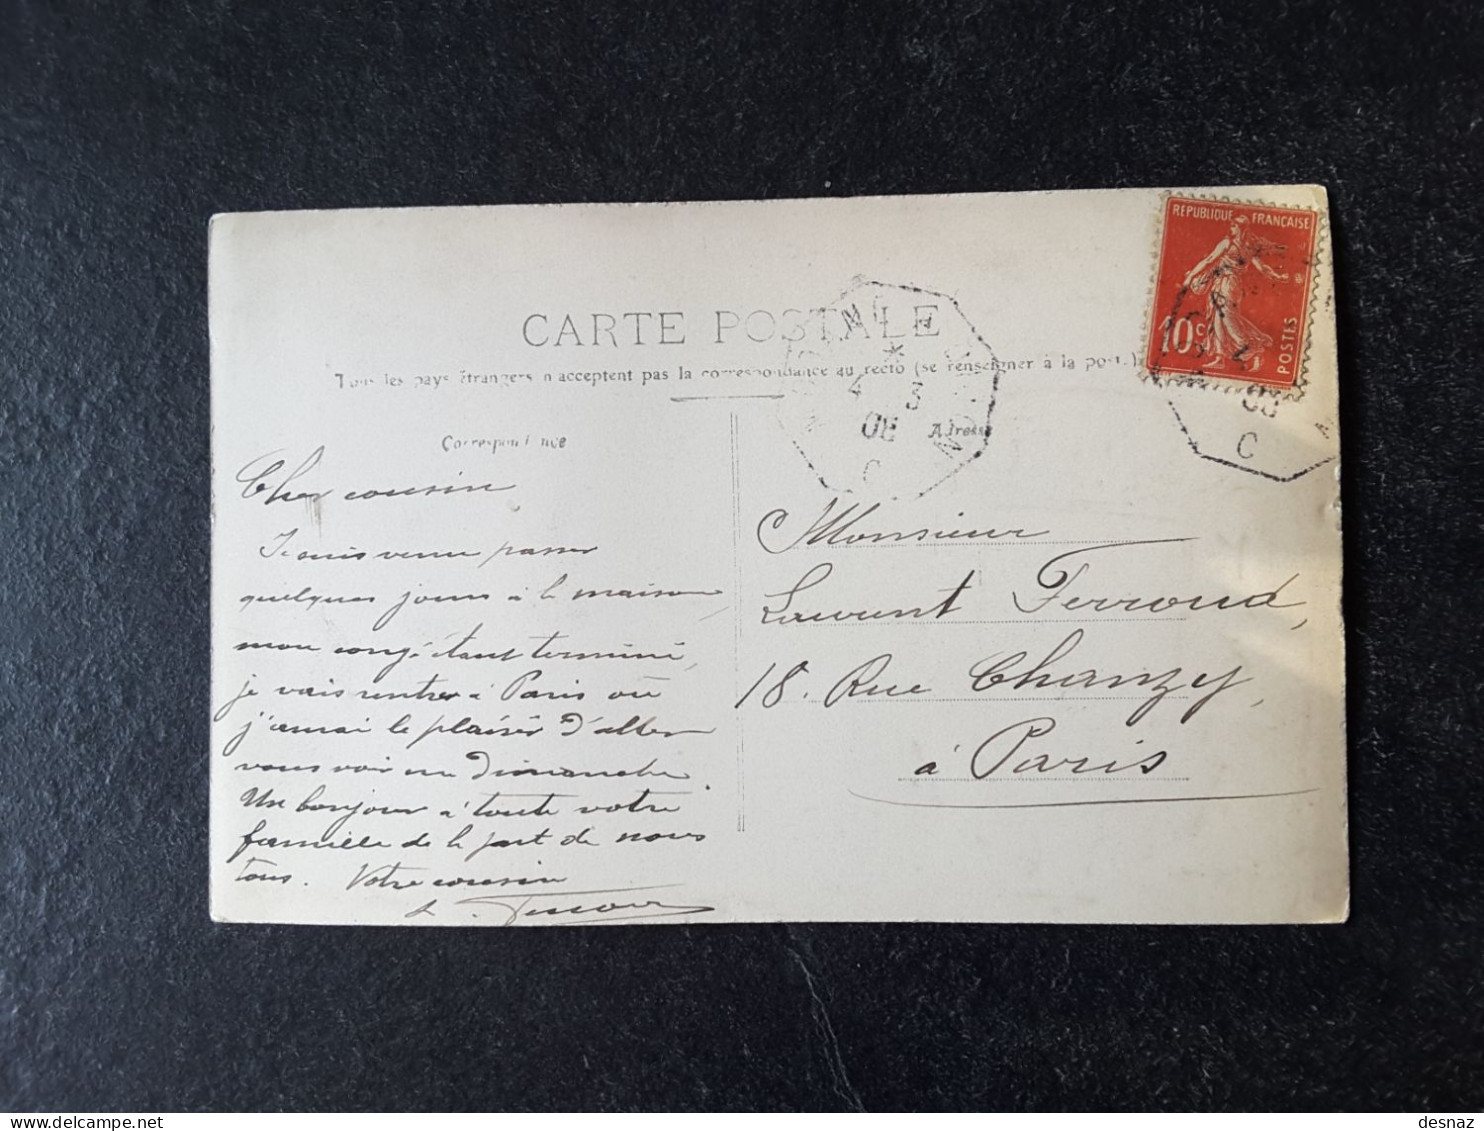 CARTE POSTALE
Tous les pays étrangers n'acceptent pas la correspondance au recto (se renseigner à la poste.)
Correspondance
Adresse
REPUBLIQUE FRANÇAISE
10c
POSTES
4 3
08
C
08
C
Cher cousin
Je suis venu passer
quelques jours à la maison
mon congé étant terminé,
je vais rentrer à Paris où
j'aurai le plaisir d'aller
vous voir un Dimanche
Un bonjour à toute votre
famille de la part de nous
tous. Votre cousin
Monsieur
Laurent Ferroud,
18. Rue Chanzy,
à Paris
delcampe.net
desnaz